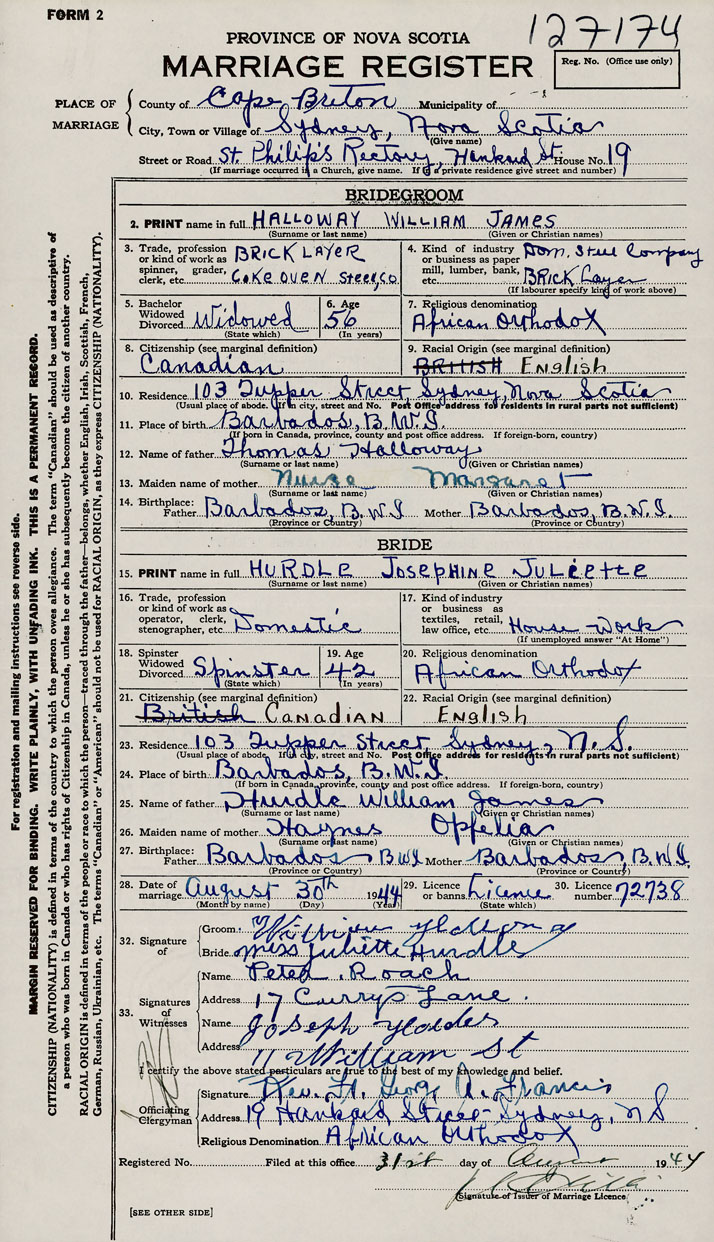 FORM 2
127174
PROVINCE OF NOVA SCOTIA
MARRIAGE REGISTER
Reg. No. (Office use only)
PLACE OF MARRIAGE
County of Cape Breton Municipality of
City, Town or Village of Sydney, Nova Scotia
(Give name)
Street or Road St. Philip's Rectory, Hankard St. House No. 19
(If marriage occurred in a Church, give name. If a private residence give street and number)
BRIDEGROOM
2. PRINT name in full HALLOWAY WILLIAM JAMES
(Surname or last name) (Given or Christian names)
3. Trade, profession or kind of work as spinner, grader, clerk, etc. BRICK LAYER COKE OVEN STEEL CO
4. Kind of industry or business as paper mill, lumber, bank, etc. Dom. Steel Company BRICK Layer
(If labourer specify kind of work above)
5. Bachelor Widowed Divorced Widowed
(State which)
6. Age 56
(In years)
7. Religious denomination African Orthodox
8. Citizenship (see marginal definition) Canadian
9. Racial Origin (see marginal definition) BRITISH English
10. Residence 103 Tupper Street, Sydney, Nova Scotia
(Usual place of abode. If in city, street and No. Post Office address for residents in rural parts not sufficient)
11. Place of birth Barbados, B.W.I.
(If born in Canada, province, county and post office address. If foreign-born, country)
12. Name of father Thomas Halloway
(Surname or last name) (Given or Christian names)
13. Maiden name of mother Margaret
(Surname or last name) (Given or Christian names)
14. Birthplace: Father Barbados, B.W.I Mother Barbados, B.W.I.
(Province or Country) (Province or Country)
BRIDE
15. PRINT name in full HURDLE JOSEPHINE JULIETTE
(Surname or last name) (Given or Christian names)
16. Trade, profession or kind of work as operator, clerk, stenographer, etc. Domestic
17. Kind of industry or business as textiles, retail, law office, etc. House Work
(If unemployed answer "At Home")
18. Spinster Widowed Divorced Spinster
(State which)
19. Age 42
(In years)
20. Religious denomination African Orthodox
21. Citizenship (see marginal definition) British CANADIAN
22. Racial Origin (see marginal definition) English
23. Residence 103 Tupper Street, Sydney, N.S.
(Usual place of abode. If in city, street and No. Post Office address for residents in rural parts not sufficient)
24. Place of birth Barbados, B.W.I.
(If born in Canada, province, county and post office address. If foreign-born, country)
25. Name of father Hurdle William James
(Surname or last name) (Given or Christian names)
26. Maiden name of mother Haynes Opfelia
(Surname or last name) (Given or Christian names)
27. Birthplace: Father Barbados B.W.I Mother Barbados, B.W.I.
(Province or Country) (Province or Country)
28. Date of marriage August 30th 1944
(Month by name) (Day) (Year)
29. Licence or banns Licence
(State which)
30. Licence number 72738
32. Signature of
Groom William Halloway
Bride Miss Juliette Hurdle
33. Signatures of Witnesses
Name Peter Roach
Address 17 Currys Lane.
Name Joseph
Address 11 William St
I certify the above stated particulars are true to the best of my knowledge and belief.
Officiating Clergyman
Signature Rev. Geo. A. Francis
Address 19 Hankard Street Sydney, N S
Religious Denomination African Orthodox
Registered No. Filed at this office 31st day of 1944
(Signature of Issuer of Marriage Licence)
[SEE OTHER SIDE]
For registration and mailing instructions see reverse side.
MARGIN RESERVED FOR BINDING. WRITE PLAINLY, WITH UNFADING INK. THIS IS A PERMANENT RECORD.
CITIZENSHIP (NATIONALITY) is defined in terms of the country to which the person owes allegiance. The term "Canadian" should be used as descriptive of
a person who was born in Canada or who has rights of Citizenship in Canada, unless he or she has subsequently become the citizen of another country.
RACIAL ORIGIN is defined in terms of the people or race to which the person—traced through the father—belongs, whether English, Irish, Scottish, French,
German, Russian, Ukrainian, etc. The terms "Canadian" or "American" should not be used for RACIAL ORIGIN, as they express CITIZENSHIP (NATIONALITY).